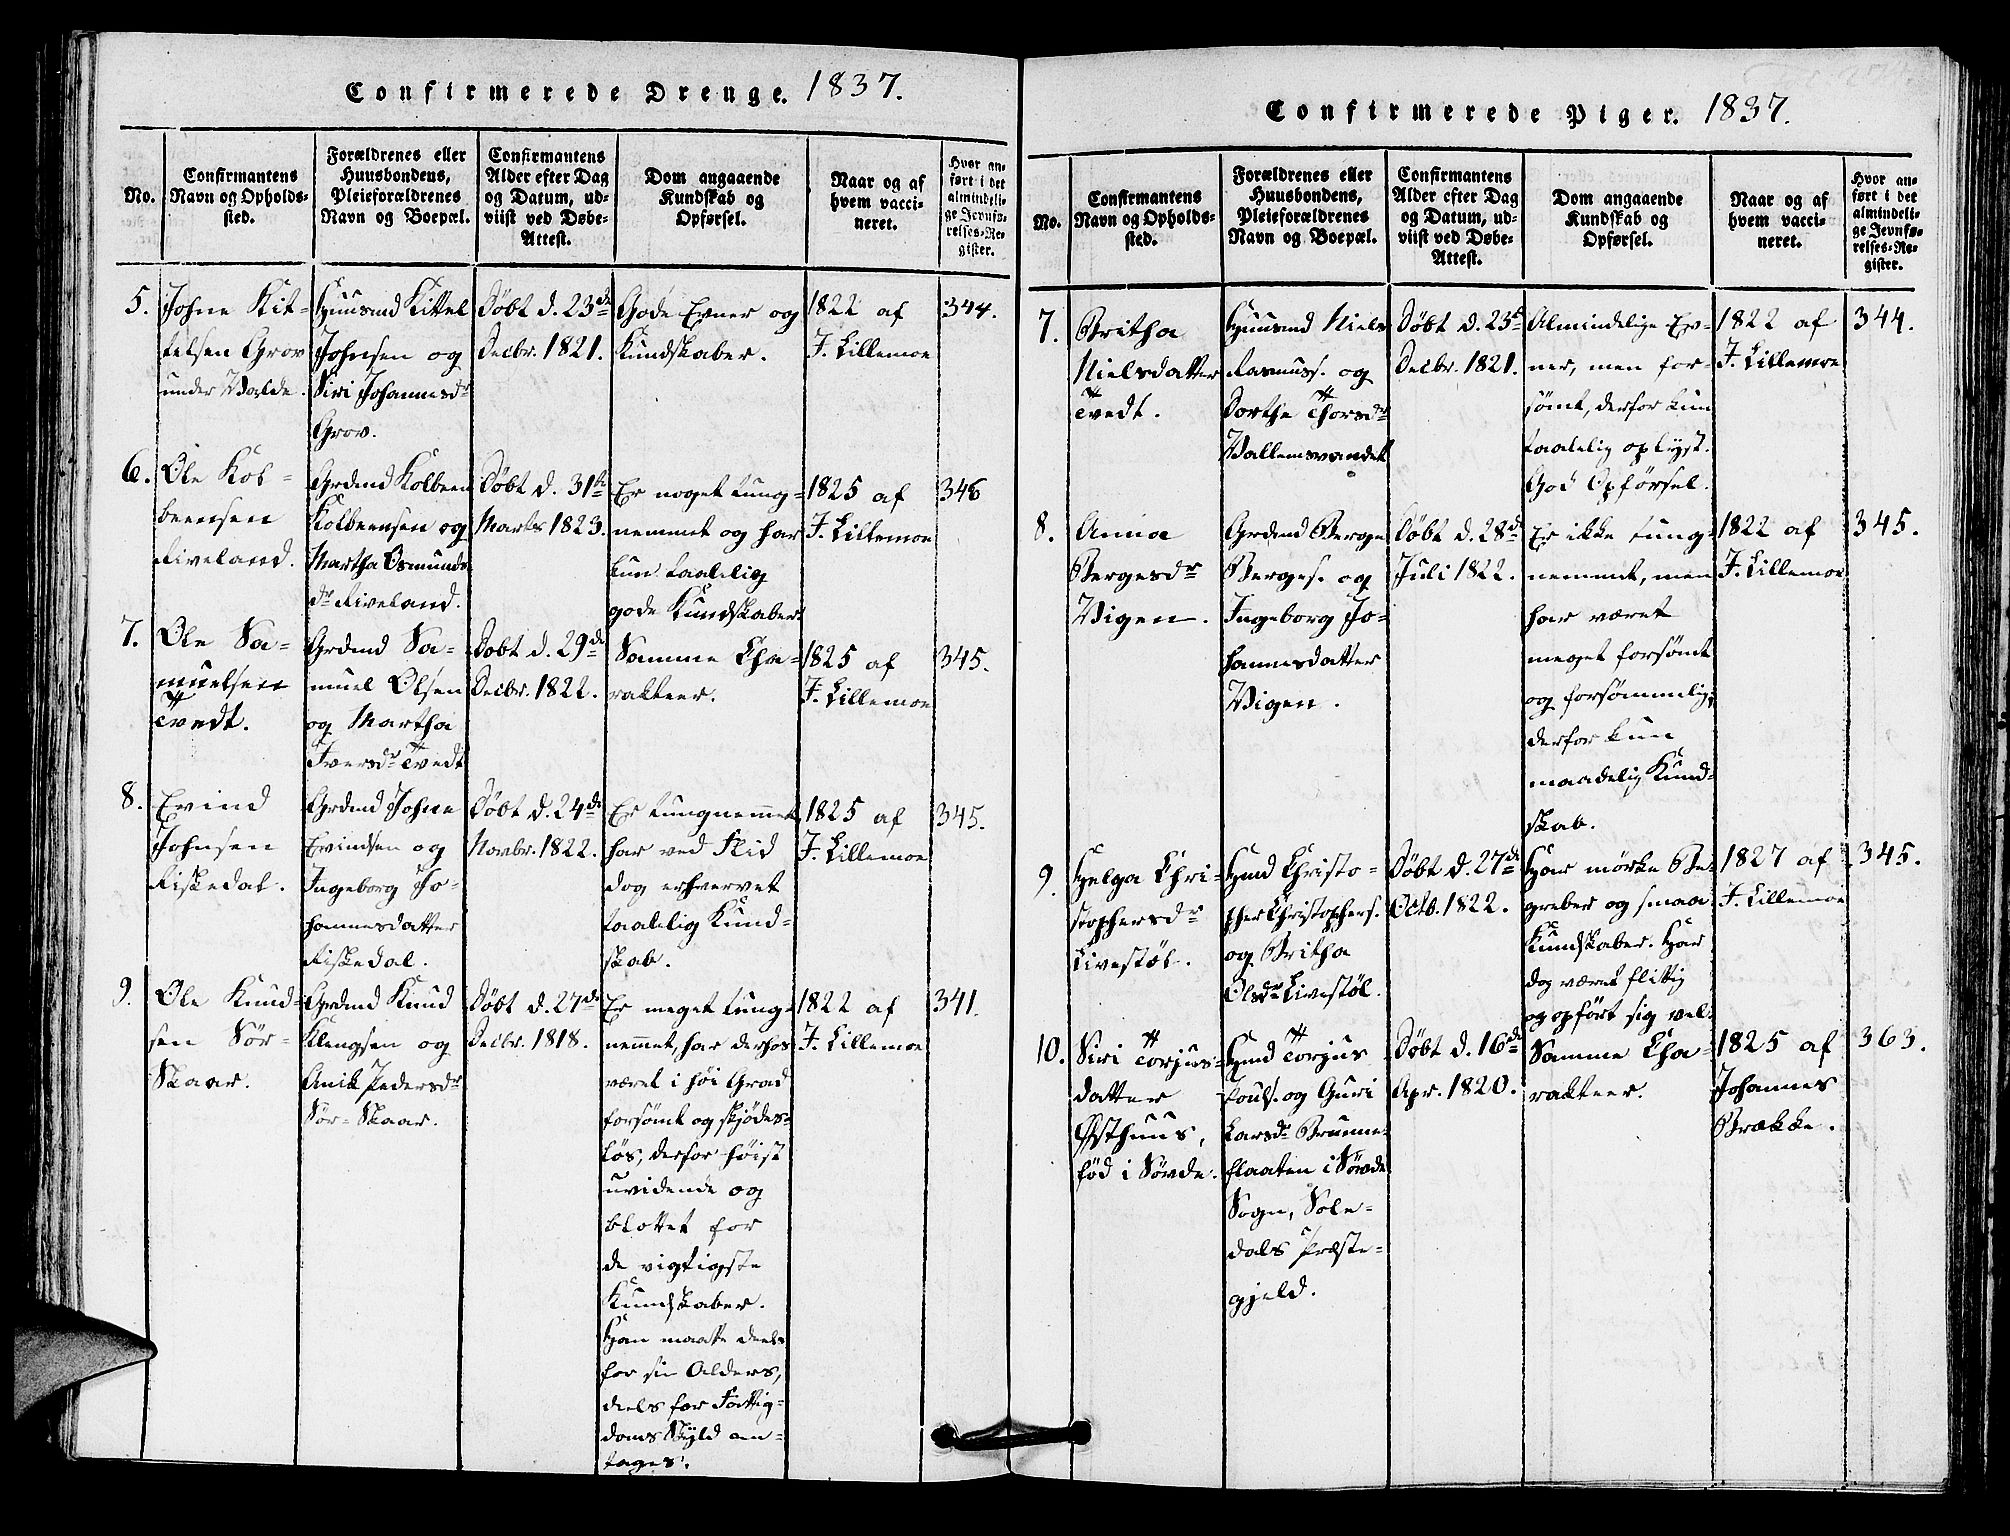 Confirmerede Drenge. 1837.
No.
Confirmantens
Navn og Opholds-
sted.
Forældrenes eller
Huusbondens,
Pleieforældrenes
Navn og Boepæl.
Confirmantens
Alder efter Dag
og Datum, ud-
viist ved Døbe-
Attest.
Dom angaaende
Kundskab og
Opførsel.
Naar og af
hvem vacci-
neret.
Hvor an-
ført i det
almindeli-
ge Jevnfø-
relses-Re-
gister.
5.
Johne Kit-
telsen Grov
under Valde.
Huusmd Kittel
Johnsen og
Siri Johannesdr
Grov.
Döbt d. 23de
Decbr. 1821.
Gode Evner og
Kundskaber.
1822 af
J. Lillemoe
344.
6.
Ole Kol-
beensen
Riveland.
Grdmd Kolbeen
Kolbeensen og
Martha Osmunds
dr Riveland.
Döbt d. 31te
Marts 1823.
Er noget tung-
nemmet og har
kun taalelig
gode Kundskaber.
1825 af
J. Lillemoe
346
7.
Ole Sa-
muelsen
Tvedt.
Grdmd Sa-
muel Olsen
og Martha
Iversdr Tvedt
Döbt d. 29de
Decbr. 1822.
Samme Cha-
rakteer.
1825 af
J. Lillemoe
345.
8.
Evind
Johnsen
Fiskedal.
Grdmd Johne
Evindsen og
Ingeborg Jo-
hannesdatter
Fiskedal.
Döbt d. 24de
Novbr. 1822.
Er tungnemmet,
har ved Flid
dog erhvervet
taalelig Kund-
skab.
1825 af
J. Lillemoe
345.
9.
Ole Knud-
sen Sör-
Skaar.
Grdmd Knud
Klengsen og
Anik Pedersdr
Sör-Skaar.
Döbt d. 27de
Decbr. 1818.
Er meget tung-
nemmet, har derhos
været i höi Grad
forsömt og skjödes-
lös, derfor höist
uvidende og
blottet for
de vigtigste
Kundskaber.
Han maatte deels
for sin Alders,
deels for Fattig-
doms Skyld an-
tages.
1822 af
J. Lillemoe
341.
Confirmerede Piger. 1837.
No.
Confirmantens
Navn og Opholds-
sted.
Forældrenes eller
Huusbondens,
Pleieforældrenes
Navn og Boepæl.
Confirmantens
Alder efter Dag
og Datum, ud-
viist ved Døbe-
Attest.
Dom angaaende
Kundskab og
Opførsel.
Naar og af
hvem vacci-
neret.
Hvor an-
ført i det
almindeli-
ge Jevnfø-
relses-Re-
gister.
7.
Britha
Nielsdatter
Tvedt.
Huusmd Niels
Rasmuss. og
Dorthe Thorsdr
Vallemsvandet
Döbt d. 25de
Decbr. 1821.
Almindelige Ev-
ner, men for-
sömt, derfor kun
taalelig oplyst.
God Opförsel.
1822 af
J. Lillemoe
344.
8.
Anna
Bergesdr
Vigen.
Grdmd Berge
Berges. og
Ingeborg Jo-
hannesdatter
Vigen.
Döbt d. 28de
Juli 1822.
Er ikke tung-
nemmet, men
har været
meget forsömt
og forsömmelig,
derfor kun
maadelig Kund-
skab.
1822 af
J. Lillemoe
345.
9.
Helga Chri-
stophersdr
Livestöl.
Hmd Christo-
pher Christophers.
og Britha
Olsdr Livestöl.
Döbt d. 27de
Octb. 1822.
Har mörke Be-
greber og smaa
Kundskaber. Har
dog været flittig
og opfört sig vel.
1827 af
J. Lillemoe
345.
10.
Siri Torjus-
datter
Østhuus,
föd i Sövde.
Hmd Torjus
Pouls. og Guri
Larsdr Brunne-
flaaten i Sövde
Sogn, Sole-
dals Præste-
gjeld.
Döbt d. 16de
Apr. 1820.
Samme Cha-
rakteer.
1825 af
Johannes
Brække.
363.